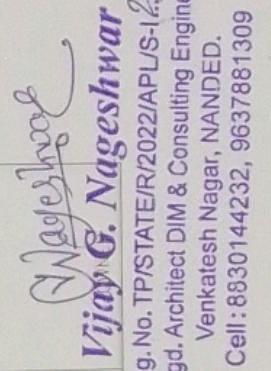 VNageshwar
Vijay G. Nageshwar
g. No. TP/STATE/R/2022/APL/S-I
gd. Architect DIM & Consulting Engine
Venkatesh Nagar, NANDED.
Cell : 8830144232, 9637881309